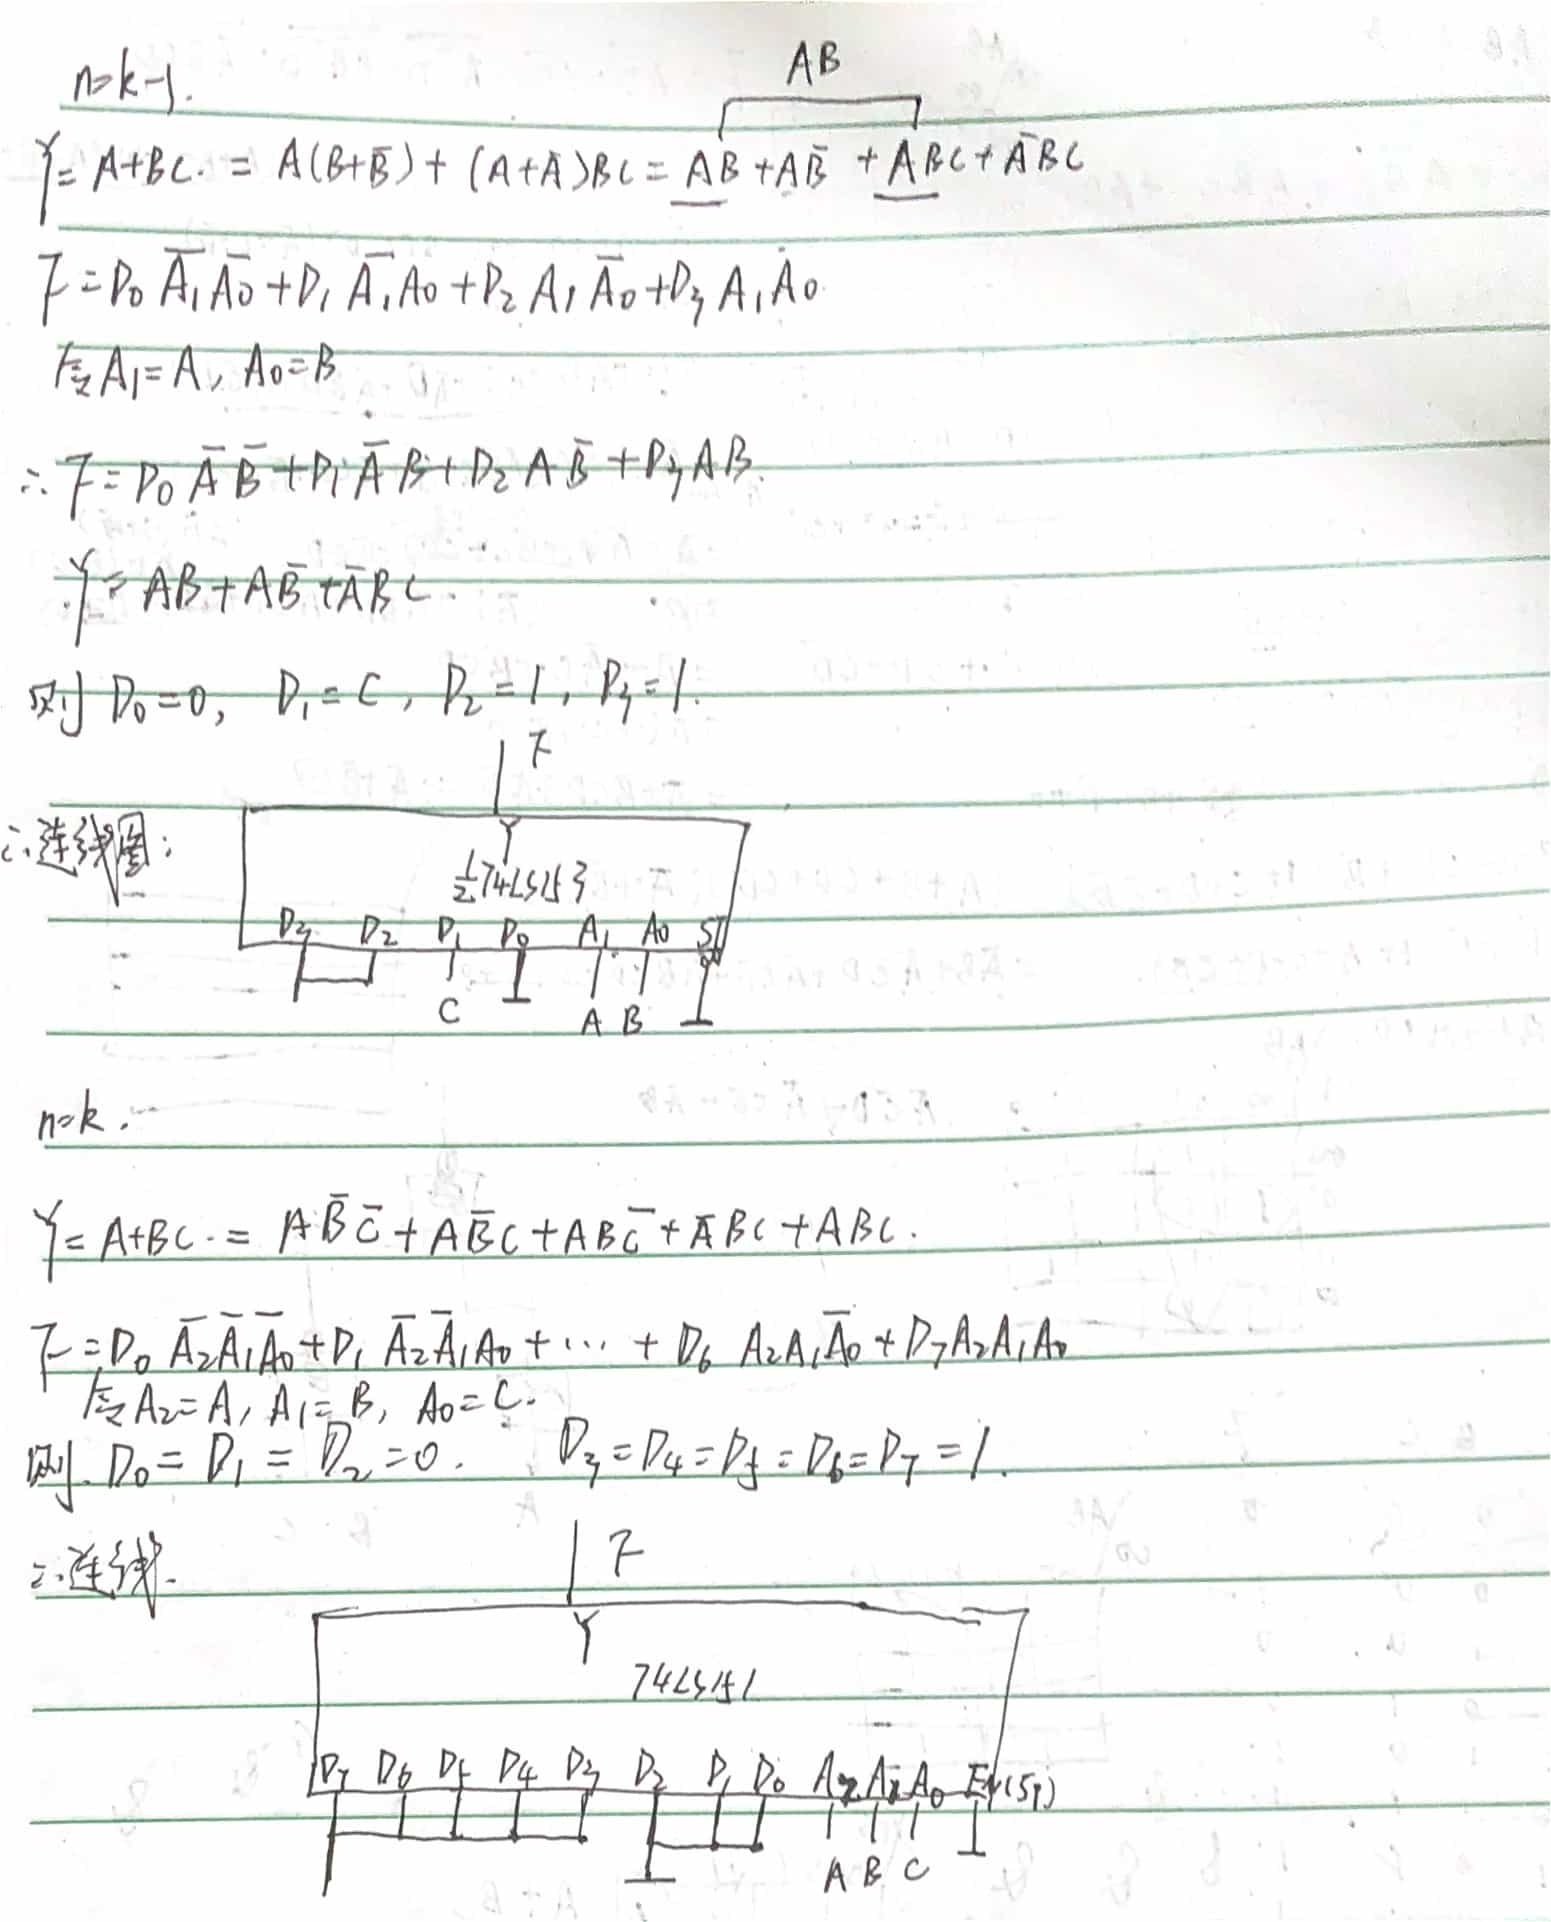 n=k-1.
AB
Y=A+BC.=A(B+B̅)+(A+A̅)BC=AB+AB̅+ABC+A̅BC
F=D₀A̅₁A̅₀+D₁A̅₁A₀+D₂A₁A̅₀+D₃A₁A₀
令A₁=A, A₀=B
∴F=D₀A̅B̅+D₁A̅B+D₂AB̅+D₃AB.
Y=AB+AB̅+A̅BC.
则D₀=0, D₁=C, D₂=1, D₃=1.
F
∴连线图:
Y
½74LS153
D₃ D₂ D₁ D₀ A₁ A₀
C A B
n=k.
Y=A+BC.=AB̅C̅+AB̅C+ABC̅+A̅BC+ABC.
F=D₀A̅₂A̅₁A̅₀+D₁A̅₂A̅₁A₀+…+D₆A₂A₁A̅₀+D₇A₂A₁A₀
令A₂=A, A₁=B, A₀=C.
则.D₀=D₁=D₂=0. D₃=D₄=D₅=D₆=D₇=1.
F
∴连线.
Y
74LS151
D₇ D₆ D₅ D₄ D₃ D₂ D₁ D₀ A₂ A₁ A₀ EN(ST)
A B C